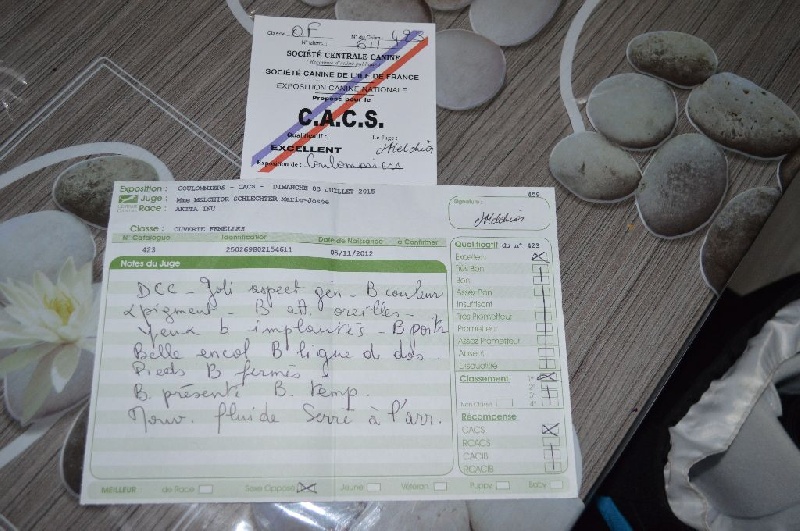 Classe: OF N° au Cat. 423
SOCIÉTÉ CENTRALE CANINE
SOCIÉTÉ CANINE DE L'ILE DE FRANCE
EXPOSITION CANINE NATIONALE
Proposé pour le
C.A.C.S.
Qualificatif: Le Juge:
EXCELLENT
Exposition de: Coulommiers
Exposition: COULOMMIERS - CACS - DIMANCHE 05 JUILLET 2015
Juge: Mme MELCHIOR SCHLECHTER Marie-Josée
Race: AKITA INU
Signature:
Classe: OUVERTE FEMELLES
N° Catalogue Identification Date de Naissance à Confirmer
423 250269802154611
Qualificatif du n° 423
Notes du Juge
DCC - Joli aspect gén - B couleur
& pigment - B att. oreilles -
Yeux b implantés - B port
Belle encol B. ligne d dos
Pieds B fermés
B. présenté B. temp.
Mouv. fluide Serré à l'arr.
Excellent
Très Bon
Bon
Assez Bon
Insuffisant
Très Prometteur
Prometteur
Assez Prometteur
Disqualifié
Classement
Récompense
CACS
RCACS
CACIB
RCACIB
MEILLEUR: de Race Sexe Opposé Jeune Vétéran Puppy Baby